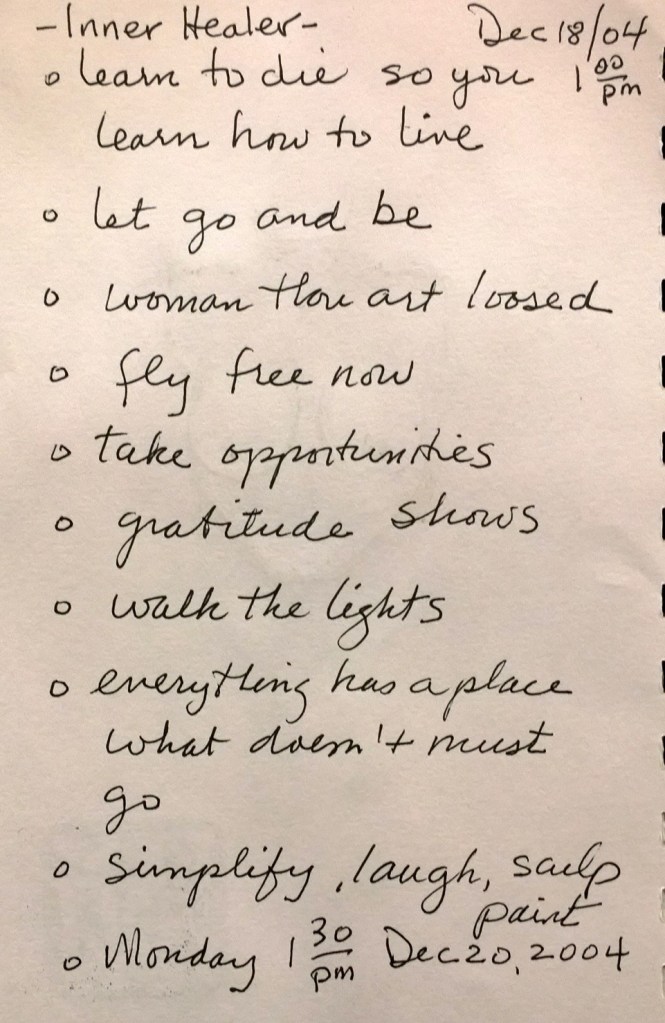 -Inner Healer- Dec 18/04
o learn to die so you 1 00/pm
learn how to live
o let go and be
o woman thou art loosed
o fly free now
o take opportunities
o gratitude shows
o walk the lights
o everything has a place
what doesn't must
go
o simplify, laugh,
paint
o Monday 1 30/pm Dec 20, 2004